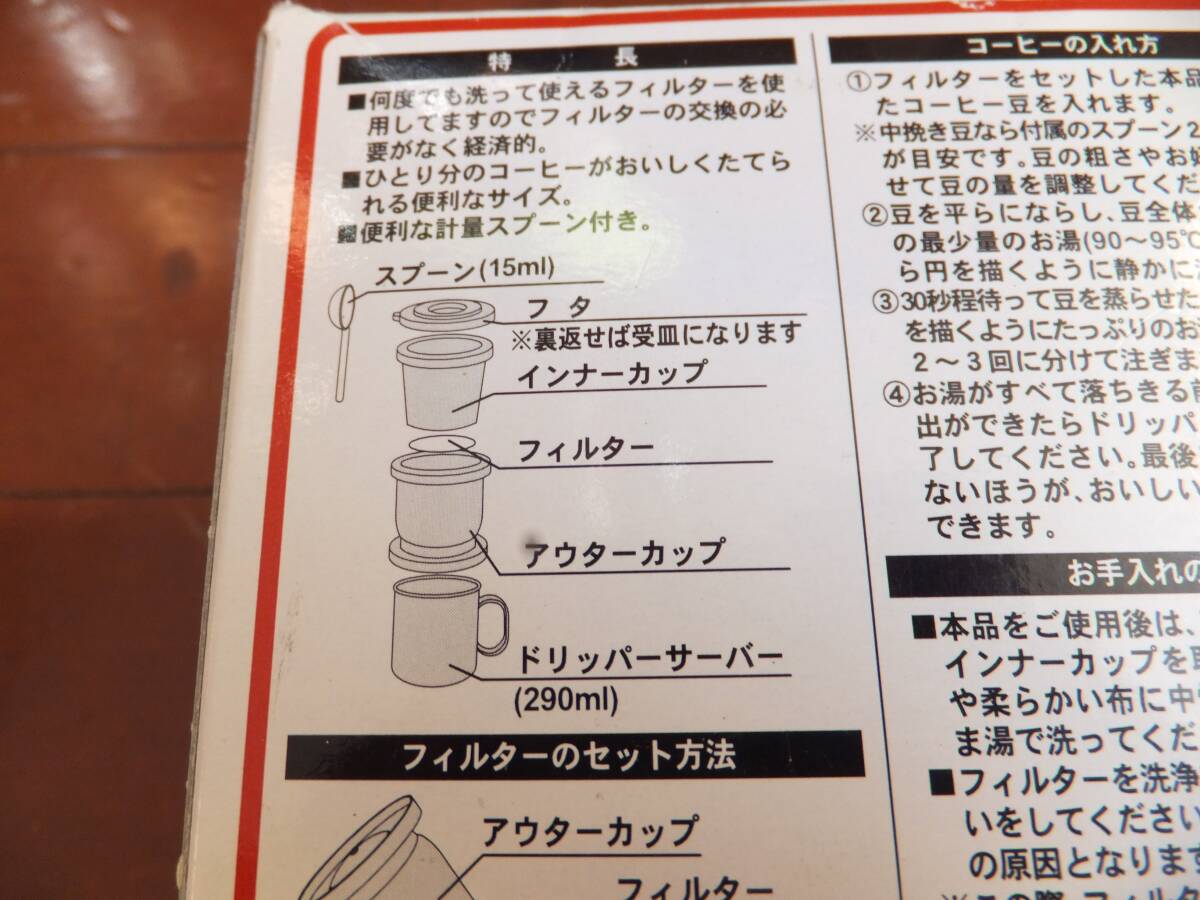 特長
■何度でも洗って使えるフィルターを使
用してますのでフィルターの交換の必
要がなく経済的。
■ひとり分のコーヒーがおいしくたてら
れる便利なサイズ。
■便利な計量スプーン付き。
スプーン(15ml)
フタ
※裏返せば受皿になります
インナーカップ
フィルター
アウターカップ
ドリッパーサーバー
(290ml)
フィルターのセット方法
アウターカップ
フィルター
コーヒーの入れ方
①フィルターをセットした本品
たコーヒー豆を入れます。
※中挽き豆なら付属のスプーン2
が目安です。豆の粗さやお好
せて豆の量を調整してくだ
②豆を平らにならし、豆全体
の最少量のお湯(90〜95℃
ら円を描くように静かに
③30秒程待って豆を蒸らせた
を描くようにたっぷりのお
2〜3回に分けて注ぎま
④お湯がすべて落ちきる前
出ができたらドリッパ
了してください。最後
ないほうが、おいしい
できます。
お手入れの
■本品をご使用後は、
インナーカップを取
や柔らかい布に中
ま湯で洗ってくだ
■フィルターを洗浄
いをしてください
の原因となります
※この際、フィルタ